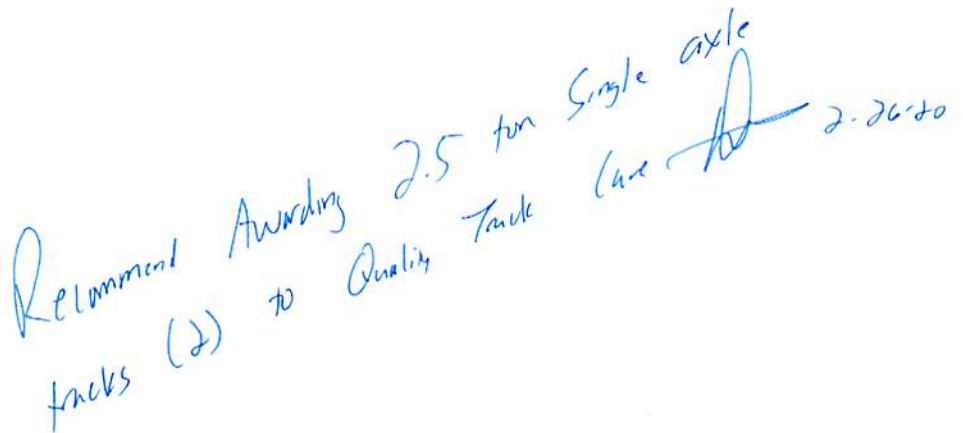 Recommend Awarding 2.5 ton Single axle
trucks (2) to Quality Truck Care 2-26-20